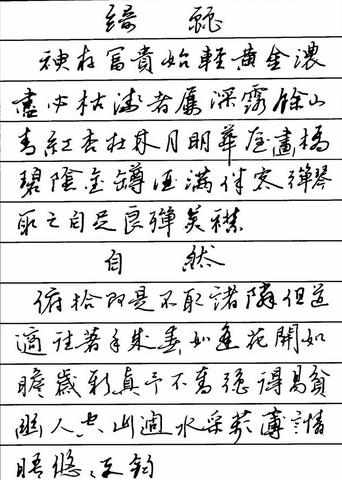 綺麗
神存富貴始輕黃金濃
盡必枯淺者屢深露餘山
青紅杏在林月明華屋畫橋
碧陰金罇酒滿伴客彈琴
取之自足良殫美襟
自然
俯拾即是不取諸隣俱道
適往著手成春如逢花開如
瞻歲新真予不奪強得易貧
幽人空山過水采蘋薄言情
晤悠悠天鈞